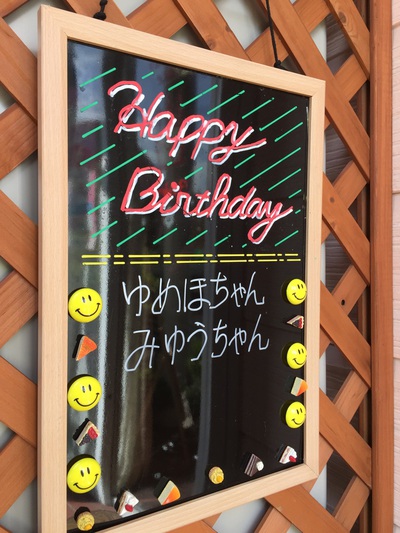 Happy
Birthday
ゆめほちゃん
みゆうちゃん